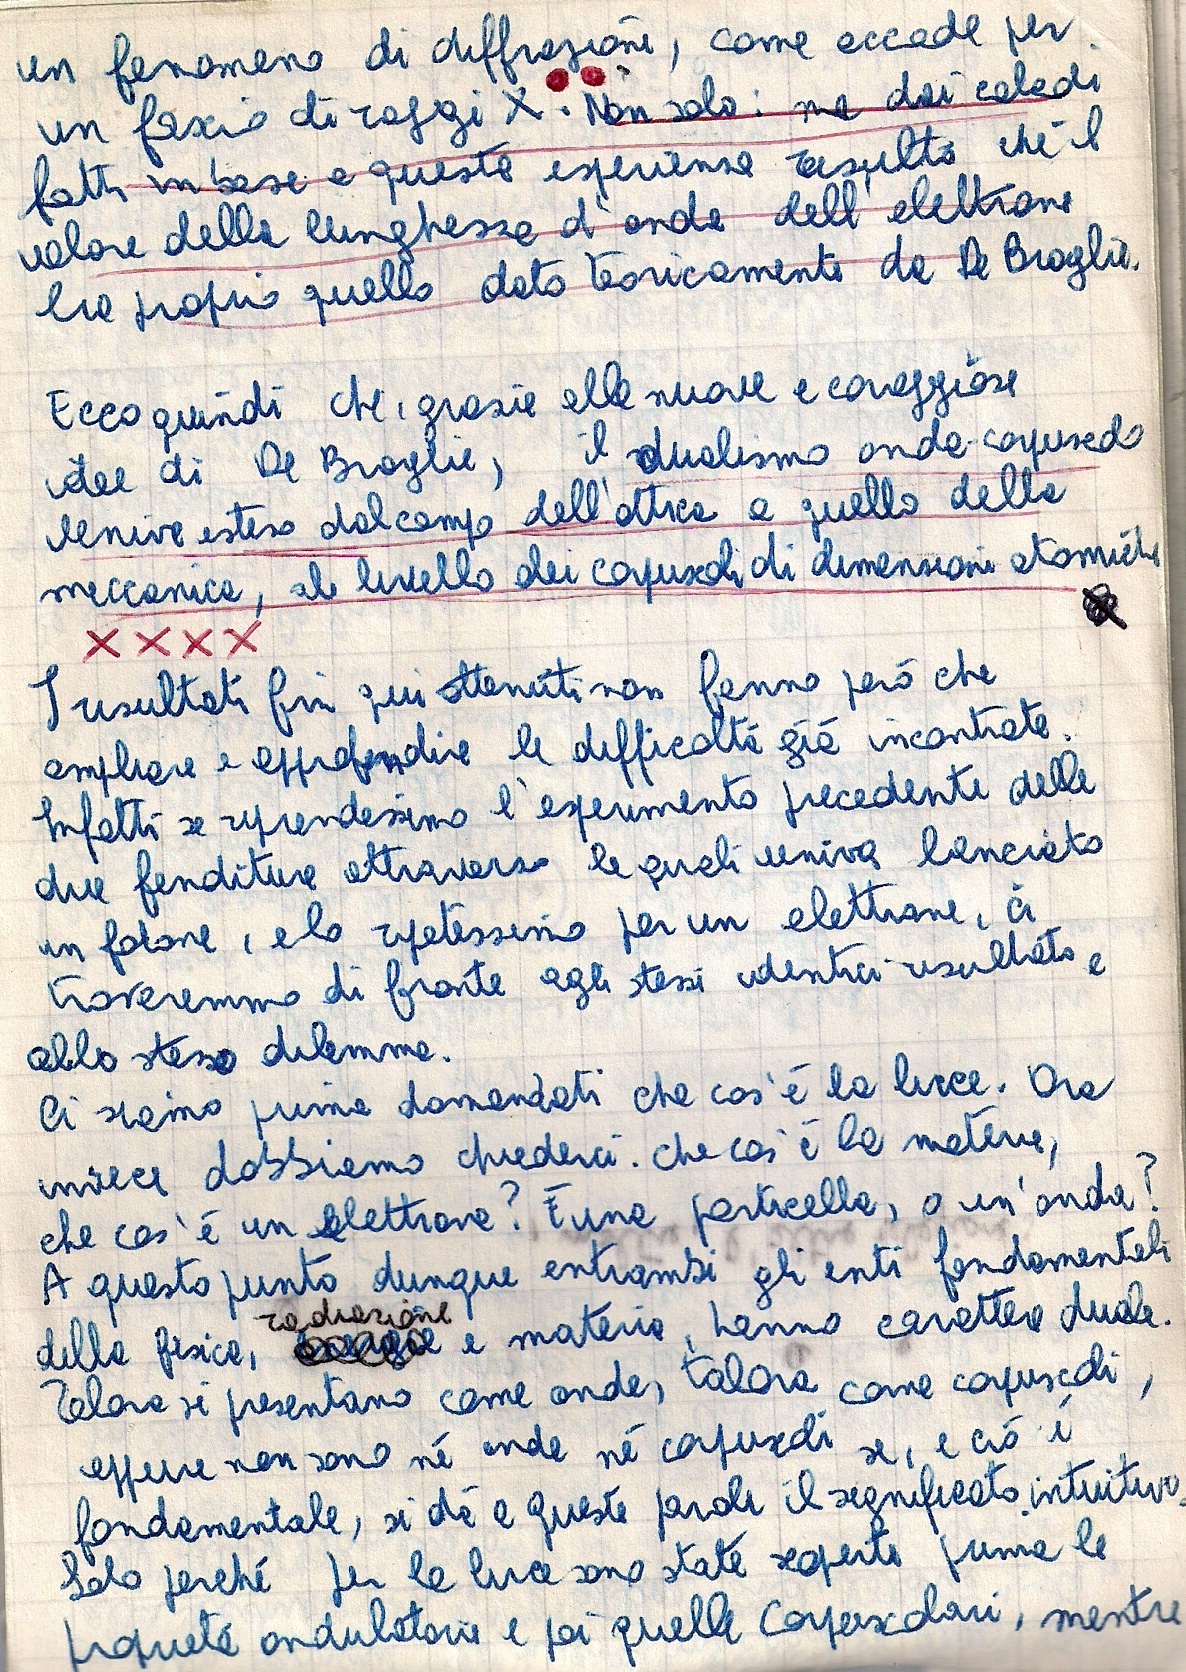 un fenomeno di diffrazione, come accade per
un fascio di raggi X. Non solo: ma dai calcoli
fatti in base a queste esperienze risultò che il
valore della lunghezza d'onda dell'elettrone
era proprio quello dato teoricamente da De Broglie.
Ecco quindi che, grazie alle nuove e coraggiose
idee di De Broglie, il dualismo onda-corpuscolo
veniva esteso dal campo dell'ottica a quello della
meccanica, al livello dei corpuscoli di dimensioni atomiche
X X X X
I risultati fin qui ottenuti non fanno però che
ampliare e approfondire le difficoltà già incontrate.
Infatti se riprendessimo l'esperimento precedente delle
due fenditure attraverso le quali veniva lanciato
un fotone, e lo ripetessimo per un elettrone, ci
troveremmo di fronte agli stessi identici risultato e
allo stesso dilemma.
Ci siamo prima domandati che cos'è la luce. Ora
invece dobbiamo chiederci: che cos'è la materia,
che cos'è un elettrone? È una particella, o un'onda?
A questo punto dunque entrambi gli enti fondamentali
della fisica, radiazione e materia, hanno carattere duale.
Talora si presentano come onde, talora come corpuscoli,
eppure non sono né onde né corpuscoli se, e ciò è
fondamentale, si dà a queste parole il significato intuitivo.
Solo perché per la luce sono state scoperte prima le
proprietà ondulatorie e poi quelle corpuscolari, mentre